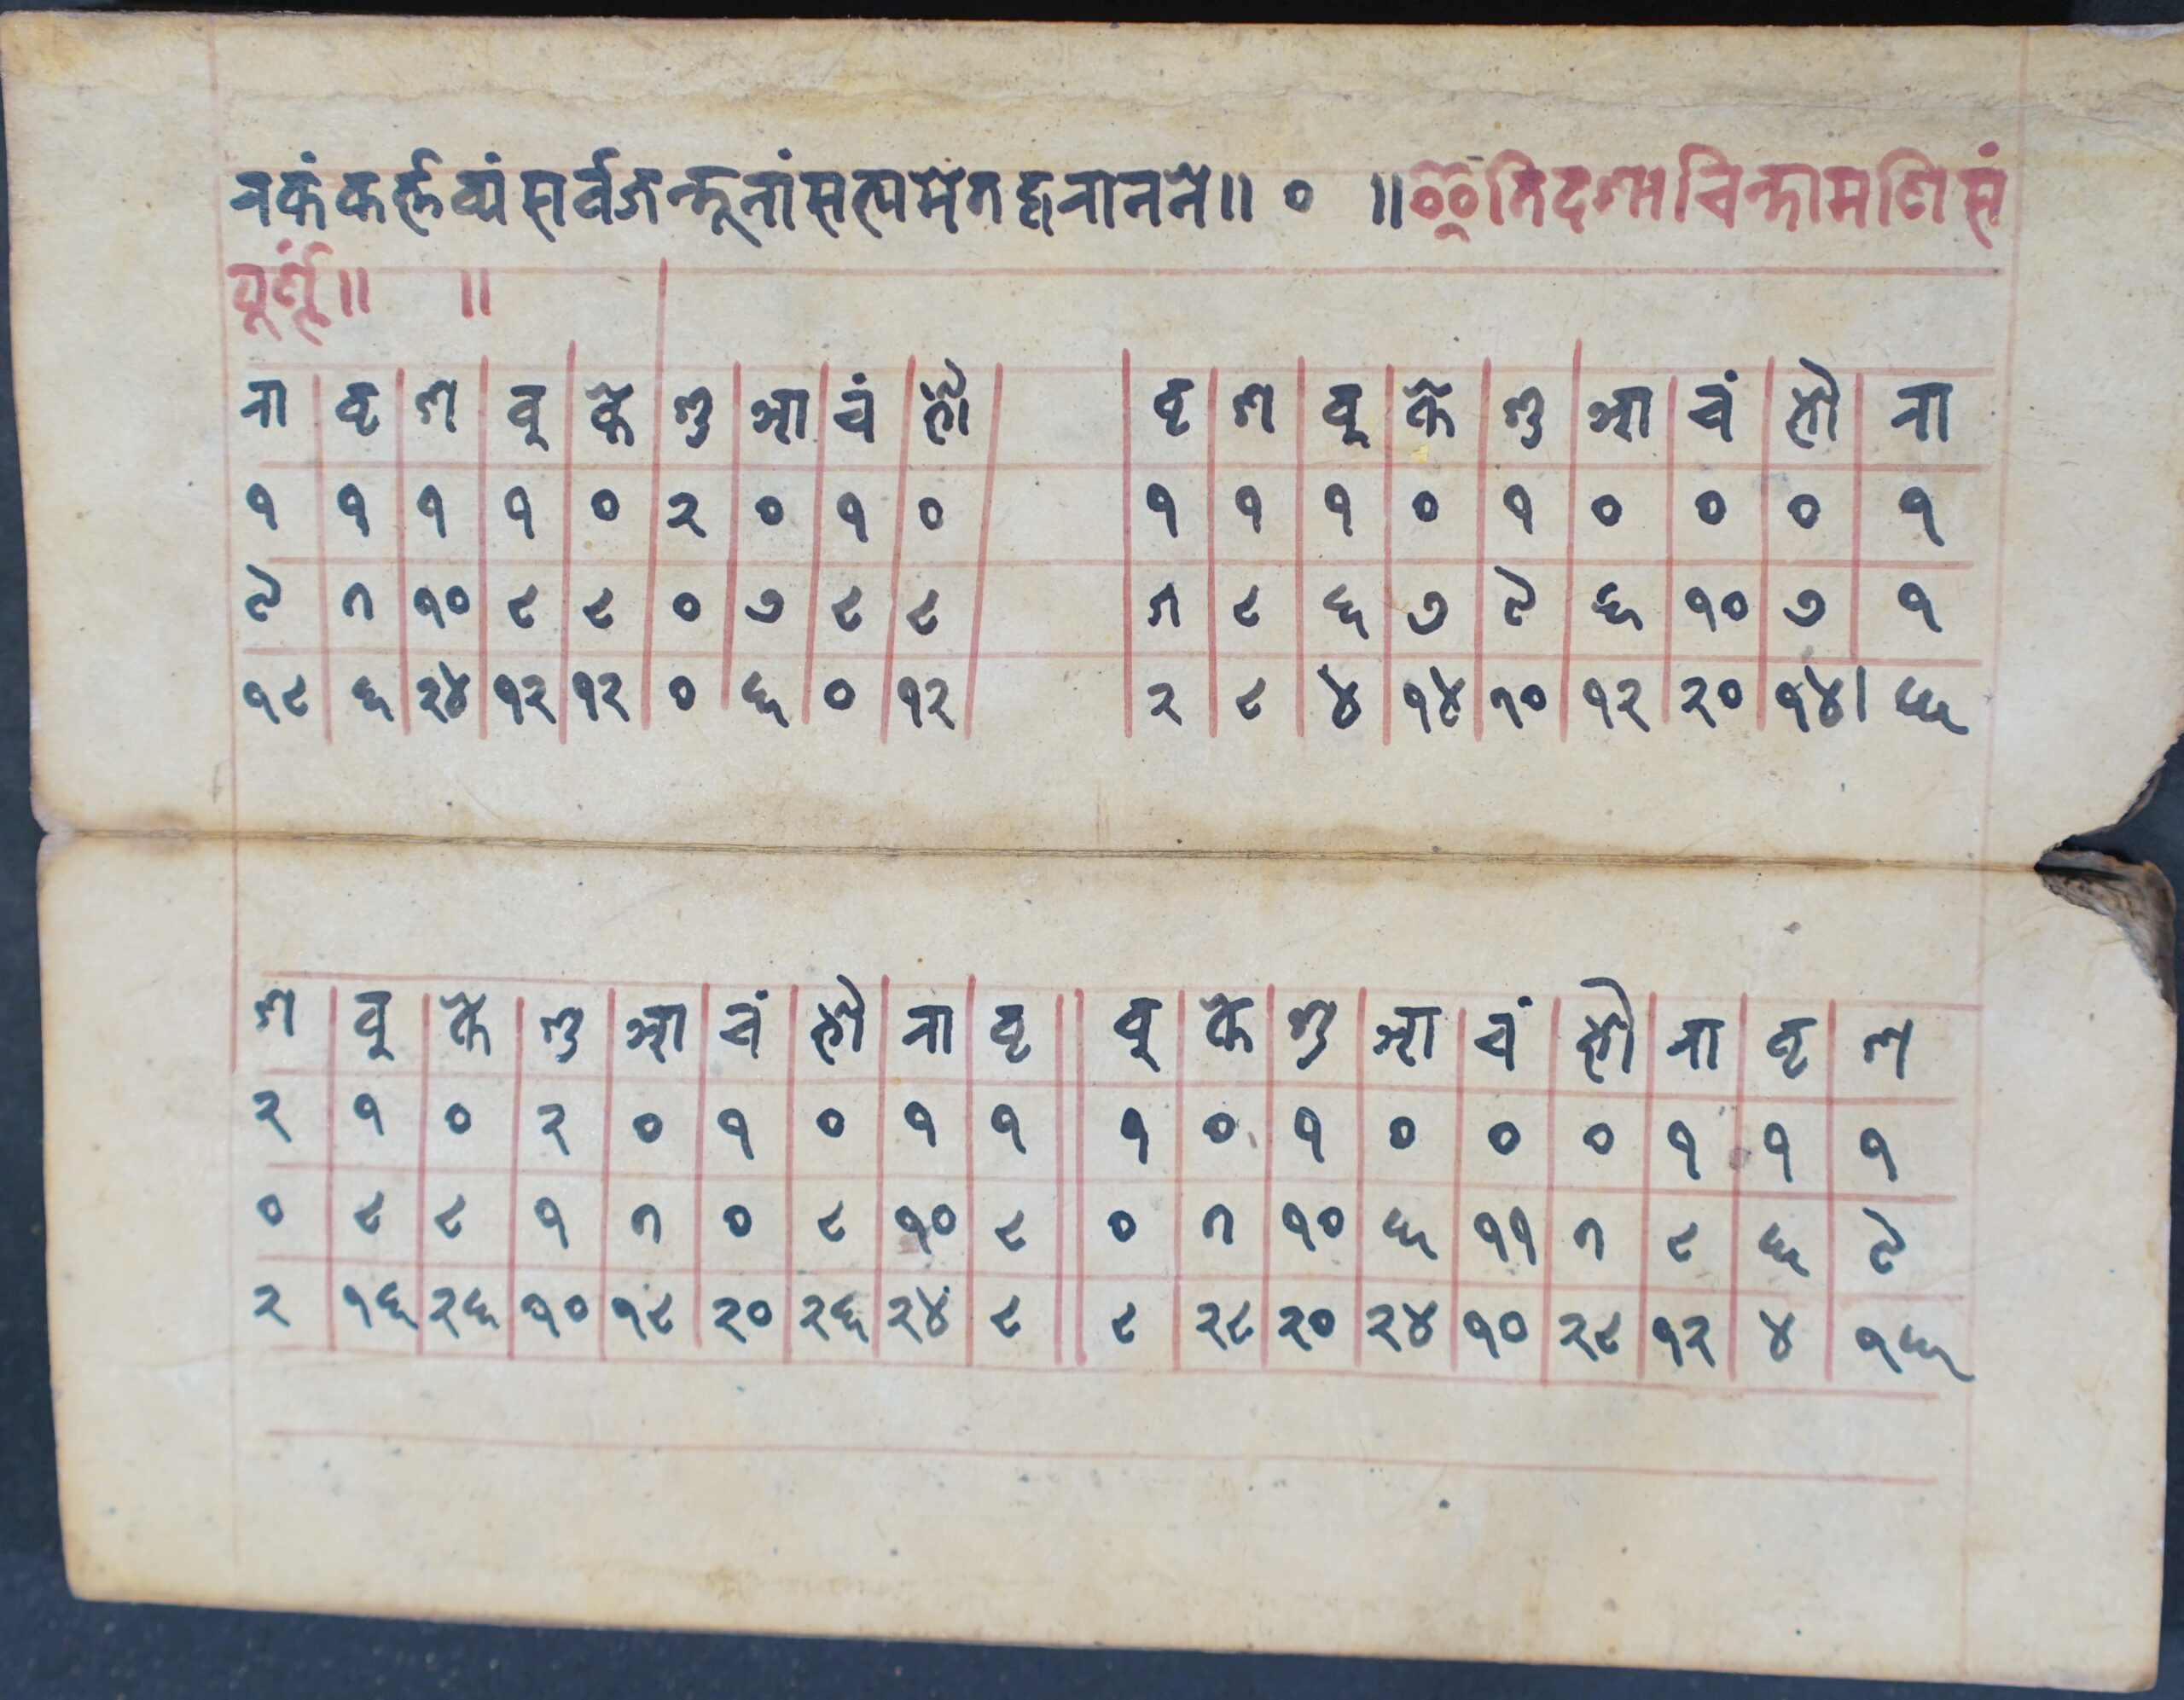 रकं कर्त्तव्यं सर्वजन्तूनां सत्यमेतद्वरानने॥ ० ॥इति दशाचिन्तामणि सं
पूर्णं॥ ॥
रा बृ श बु के शु आ चं भौ बृ श बु के शु आ चं भौ रा
१ १ १ १ ० २ ० १ ० १ १ १ ० १ ० ० ० १
९ ७ १० ८ ८ ० ७ ८ ८ ५ ८ ६ ७ ९ ६ १० ७ १
१८ ६ २४ १२ १२ ० ६ ० १२ २ ८ ४ १४ १० १२ २० १४। ६
श बु के शु आ चं भौ रा बृ बु के शु आ चं भौ रा बृ श
२ १ ० २ ० १ ० १ १ १ ० १ ० ० ० १ १ १
० ८ ८ १ ७ ० ८ १० ८ ० ७ १० ६ ११ ७ ८ ६ ९
२ १६ २६ १० १८ २० २६ २४ ८ ८ २८ २० २४ १० २८ १२ ४ १६